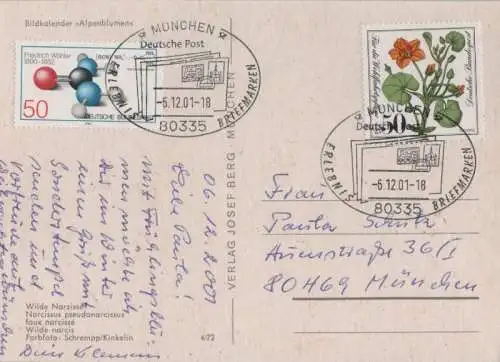 Bildkalender »Alpenblumen«
Friedrich Wöhler
1800-1882
50
DEUTSCHE BUNDESPOST
MÜNCHEN
Deutsche Post
ERLEBNIS: BRIEFMARKEN
-6.12.01-18
80335
Für die Wohlfahrtspflege
Deutsche Bundespost
50
MÜNCHEN
Deutsche Post
ERLEBNIS: BRIEFMARKEN
-6.12.01-18
80335
VERLAG JOSEF BERG MÜNCHEN
06.12.2001
Liebe Paula!
Mit Frühlingsblu-
men möchte ich
Dir im Winter
einen Gruß mit
Sonderstempel
senden und
Vorfreude auf
Frau
Paula
Auenstraße 36/I
80469 München
Wilde Narzisse
Narcissus pseudonarcissus
faux narcisse
Wilde narcis
Farbfoto: Schrempp/Kinkelin
672
Dein Klemens